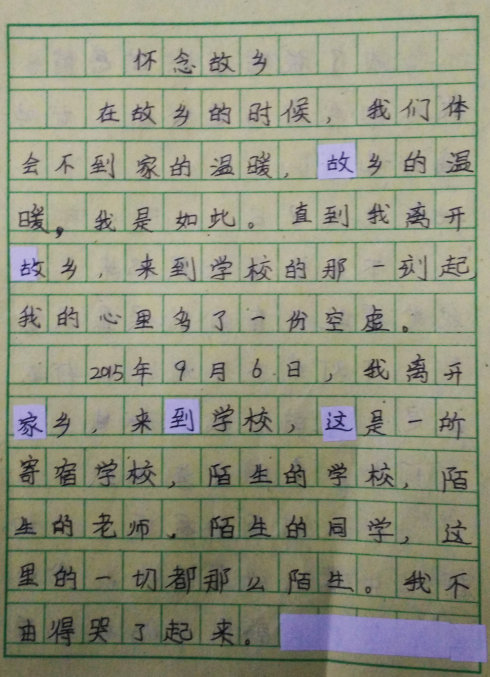 怀念故乡
在故乡的时候，我们体
会不到家的温暖，故乡的温
暖，我是如此。直到我离开
故乡，来到学校的那一刻起，
我的心里多了一份空虚。
2015年9月6日，我离开
家乡，来到学校，这是一所
寄宿学校，陌生的学校，陌
生的老师，陌生的同学，这
里的一切都那么陌生。我不
由得哭了起来。